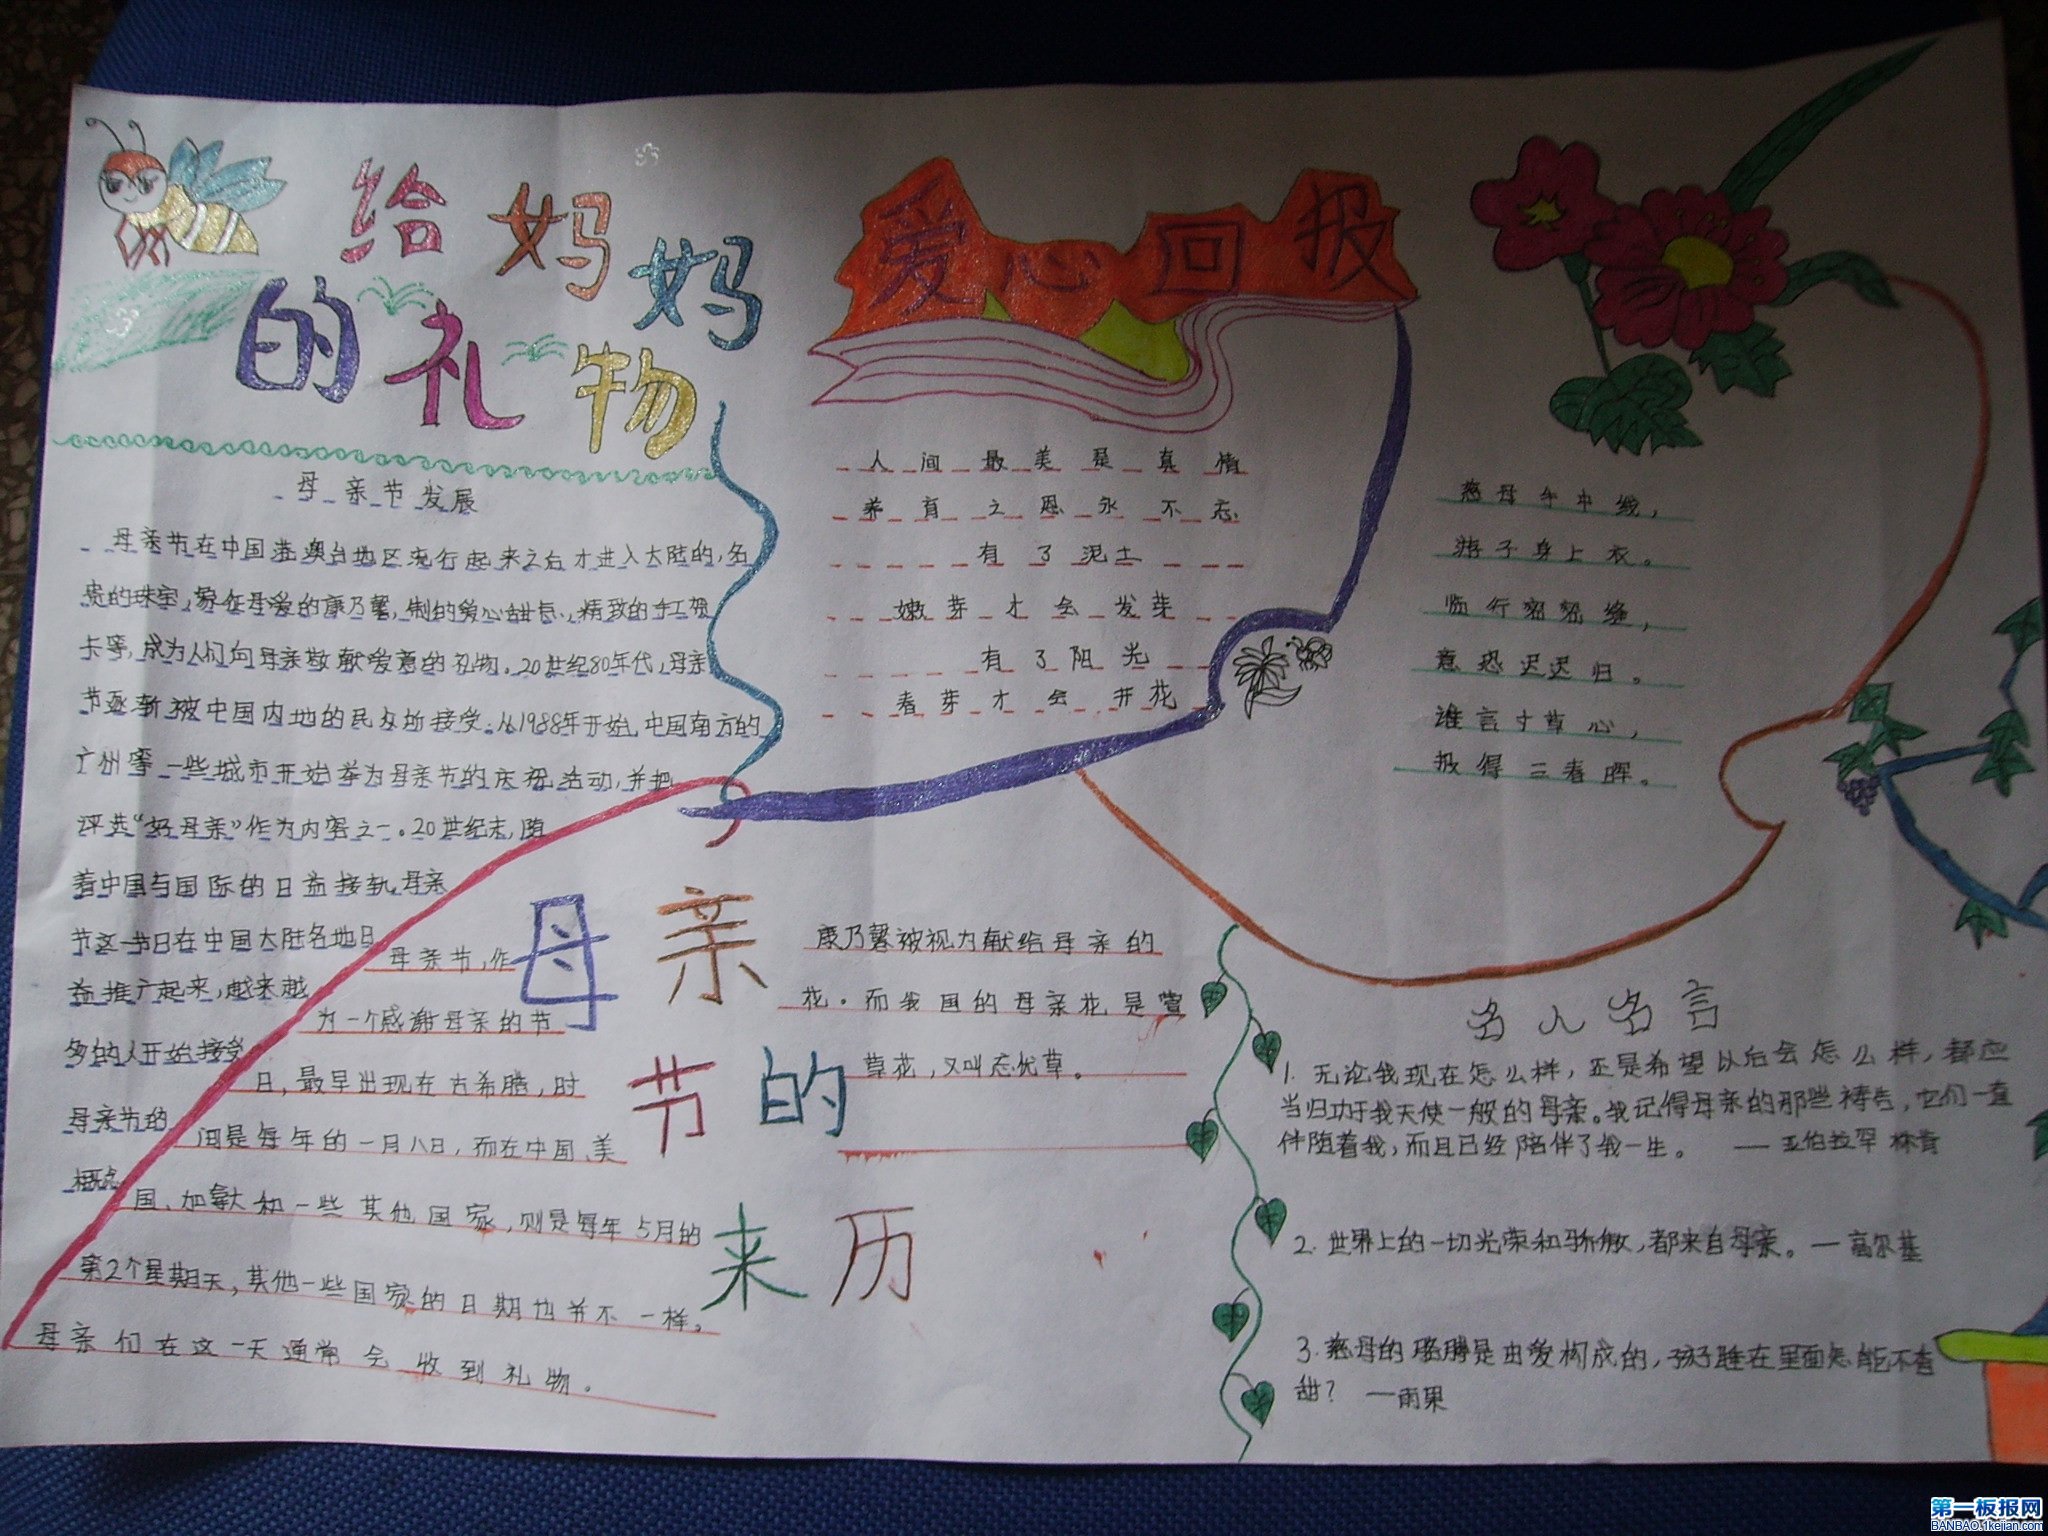 给妈妈
的礼物
母亲节发展
母亲节在中国港澳台地区流行起来之后才进入大陆的,名
贵的珠宝,象征母爱的康乃馨,特制的爱心甜点,精致的手工贺
卡等,成为人们向母亲敬献爱意的礼物。20世纪80年代,母亲
节逐渐被中国内地的民众所接受。从1988年开始,中国南方的
广州等一些城市开始举为母亲节的庆祝活动,并把
评选“好母亲”作为内容之一。20世纪末,随
着中国与国际的日益接轨,母亲
节这一节日在中国大陆各地日
益推广起来,越来越
多的人开始接受
母亲节的
概念
爱心回报
人间最美是真情
养育之恩永不忘
有了泥土
嫩芽才会发芽
有了阳光
春芽才会开花
慈母手中线,
游子身上衣。
临行密密缝,
意恐迟迟归。
谁言寸草心,
报得三春晖。
母亲节的来历
母亲节,作
为一个感谢母亲的节
日,最早出现在古希腊,时
间是每年的一月八日,而在中国、美
国、加拿大和一些其他国家,则是每年5月的
第2个星期天,其他一些国家的日期也并不一样。
母亲们在这一天通常会收到礼物。
康乃馨被视为献给母亲的
花。而我国的母亲花是萱
草花,又叫忘忧草。
名人名言
1.无论我现在怎么样,还是希望以后会怎么样,都应
当归功于我天使一般的母亲。我记得母亲的那些祷告,它们一直
伴随着我,而且已经陪伴了我一生。 —亚伯拉罕 林肯
2.世界上的一切光荣和骄傲,都来自母亲。—高尔基
3.慈母的胳膊是由爱构成的,孩子睡在里面怎能不香
甜? —雨果
第一板报网
BANBAO.1kejian.com